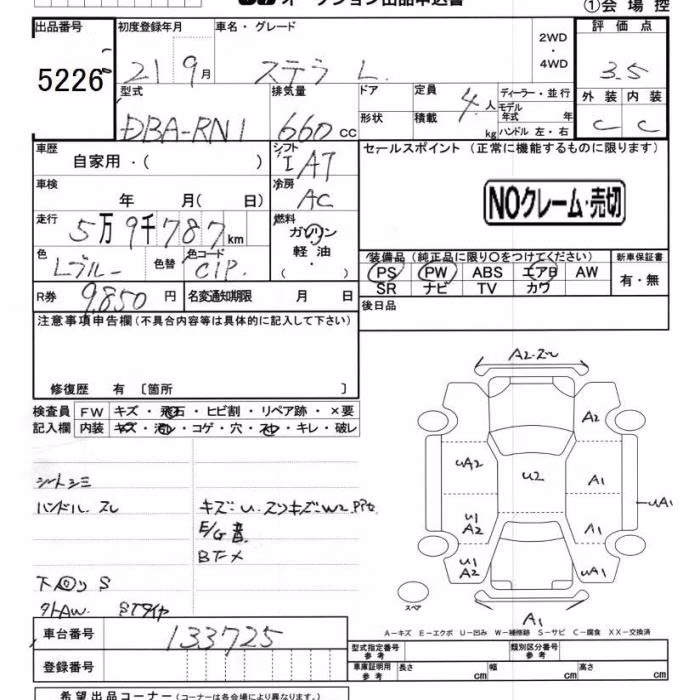 オークション出品申込書
①会場控
出品番号 初度登録年月 車名・グレード 評価点
5226 21 9月 ステラ L 2WD・4WD 3.5
型式 排気量 ドア 定員 ディーラー・並行 外装 内装
DBA-RN1 660cc 形状 積載 4人 kg モデル年式 年 ハンドル 左・右 C C
車歴 自家用・( ) シフト IAT セールスポイント(正常に機能するものに限ります)
車検 年 月( 日) 冷房 AC
NOクレーム・売切
走行 5万9千787km 燃料 ガソリン・軽油・( )
色 Lブルー 色替 色コード C1P 装備品(純正品に限り○をつけてください) 新車保証書
PS PW ABS エアB AW 有・無
SR ナビ TV カワ
R券 9,850円 名変通知期限 月 日 後日品
注意事項申告欄(不具合内容等は具体的に記入して下さい)
修復歴 有〔箇所 〕
検査員 FW キズ・飛石・ヒビ割・リペア跡・×要
記入欄 内装 キズ・汚レ・コゲ・穴・スレ・キレ・破レ
シートシミ
ハンドルスレ
キズ・U・スリキズ・W2
E/G音
下回りS
STタイヤ
A2
A2
UA2
U2
A1
UA1
U1
A2
A1
U1
A2
UA1
A1
スペア
A-キズ E-エクボ U-凹み W-補修跡 S-サビ C-腐食 XX-交換済
車台番号 133725
型式指定番号 参考 類別区分番号 参考
登録番号
車庫証明用 参考 長さ cm 幅 cm 高さ cm
希望出品コーナー(コーナーは各会場により異なります。)